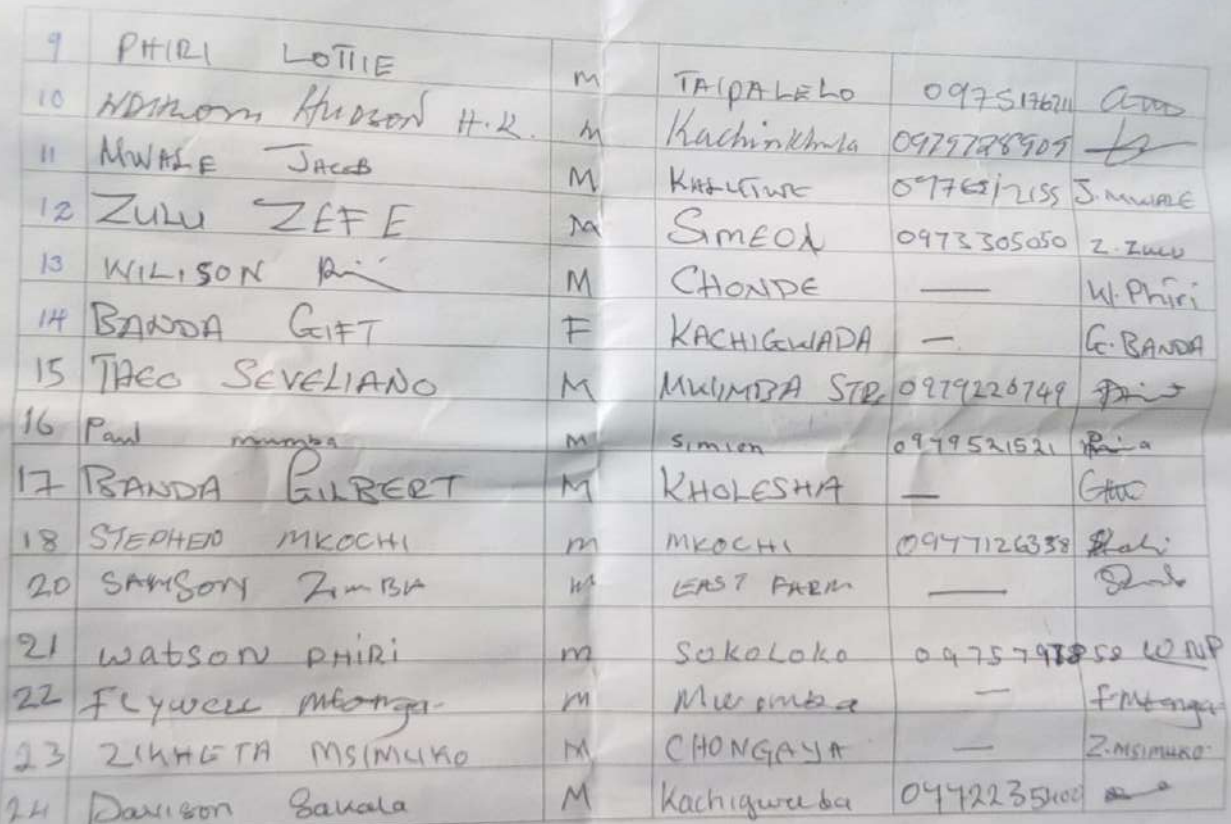 9 PHIRI LOTTIE M TAIPALELO 0975176211
10 HUDSON H.K. M Kachinkhula 0979728909
11 MWALE JACOB M J. MWALE
12 ZULU ZEFE M SIMEON 0973305050 Z. Zulu
13 WILISON M CHONDE — W. Phiri
14 BANDA GIFT F KACHIGWADA — G. BANDA
15 THEO SEVELIANO M MWIMBA STR. 0979226749
16 Paul mumba M simien 0979521521
17 BANDA GILBERT M KHOLESHA —
18 STEPHEN MKOCHI m MKOCHI 0977126338
20 SAMSON ZIMBA M EAST FARM —
21 Watson PHIRI m SOKOLOKO WNP
22 Flywell Mtonga m — F. Mtonga
23 ZIKHETA MSIMUKO M CHONGAYA — Z. MSIMUKO
24 Davison Sakala M